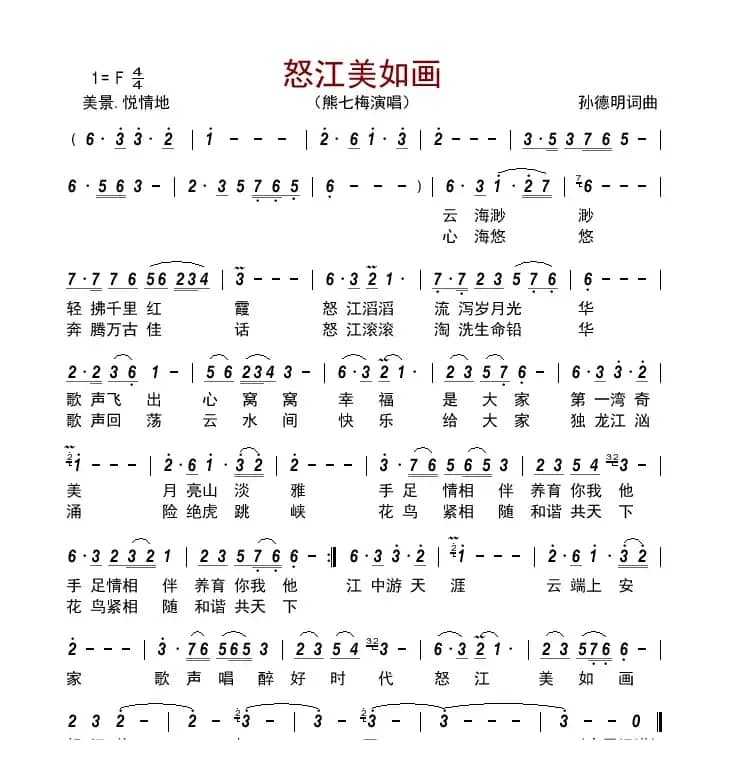 怒江美如画
1= F 4/4
美景.悦情地 （熊七梅演唱） 孙德明词曲
( 6 · 3 3 · 2 | 1 - - - | 2 · 6 1 · 3 | 2 - - - | 3 · 5 3 7 6 5 - |
6 · 5 6 3 - | 2 · 3 5 7 6 5 | 6 - - - ) | 6 · 3 1 · 2 7 | 7 6 - - - |
云 海渺 渺
心 海悠 悠
7 · 7 7 6 5 6 2 3 4 | 3 - - - | 6 · 3 2 1 · | 7 · 7 2 3 5 7 6 | 6 - - - |
轻 拂千里 红 霞 怒 江滔滔 流 泻岁月光 华
奔 腾万古 佳 话 怒 江滚滚 淘 洗生命铅 华
2 · 2 3 6 1 - | 5 6 2 3 4 3 - | 6 · 3 2 1 · | 2 3 5 7 6 - | 6 · 3 3 · 2 |
歌 声飞 出 心 窝 窝 幸 福 是 大 家 第 一湾 奇
歌 声回 荡 云 水 间 快 乐 给 大 家 独 龙江 汹
2 1 - - - | 2 · 6 1 · 3 2 | 2 - - - | 3 · 7 6 5 6 5 3 | 2 3 5 4 3 2 3 - |
美 月 亮山 淡 雅 手 足 情相 伴 养育 你我 他
涌 险 绝虎 跳 峡 花 鸟 紧相 随 和谐 共天 下
6 · 3 2 3 2 1 | 2 3 5 7 6 6 - :‖ 6 · 3 3 · 2 | 2 1 - - - | 2 · 6 1 · 3 2 |
手 足情相 伴 养育 你我 他 江 中游 天 涯 云 端上 安
花 鸟紧相 随 和谐 共天 下
2 - - - | 3 · 7 6 5 6 5 3 | 2 3 5 4 3 2 3 - | 6 · 3 2 1 · | 2 3 5 7 6 6 - |
家 歌 声 唱 醉 好 时 代 怒 江 美 如 画
2 3 2 - | 2 - 2 3 - | 3 - - - | 3 - - - | 3 - - 0 ‖